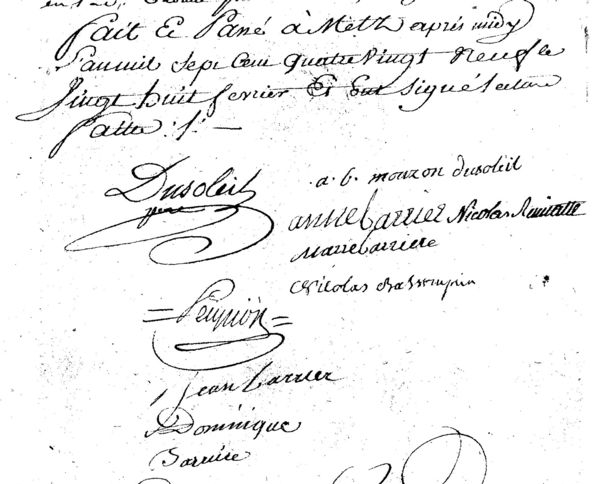 fait & Passé à Metz après midy
L'an mil Sept Cent quatre Vingt Neuf le
Vingt huit fevrier Et Ont signé Lecture
faitte
Dusoleil
pere
a. b. mouzon dusoleil
anne Carrier Nicolas
marie Carriere
Nicolas
= Peupion =
jean Carrier
Dominique